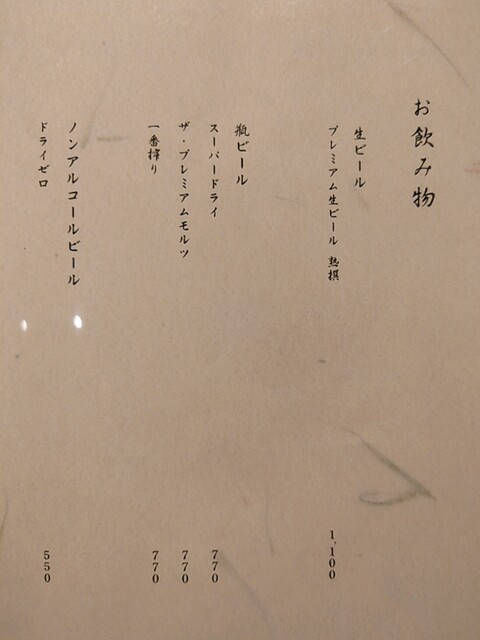 お飲み物
生ビール
プレミアム生ビール 熟撰 1,100
瓶ビール
スーパードライ 770
ザ・プレミアムモルツ 770
一番搾り 770
ノンアルコールビール
ドライゼロ 550